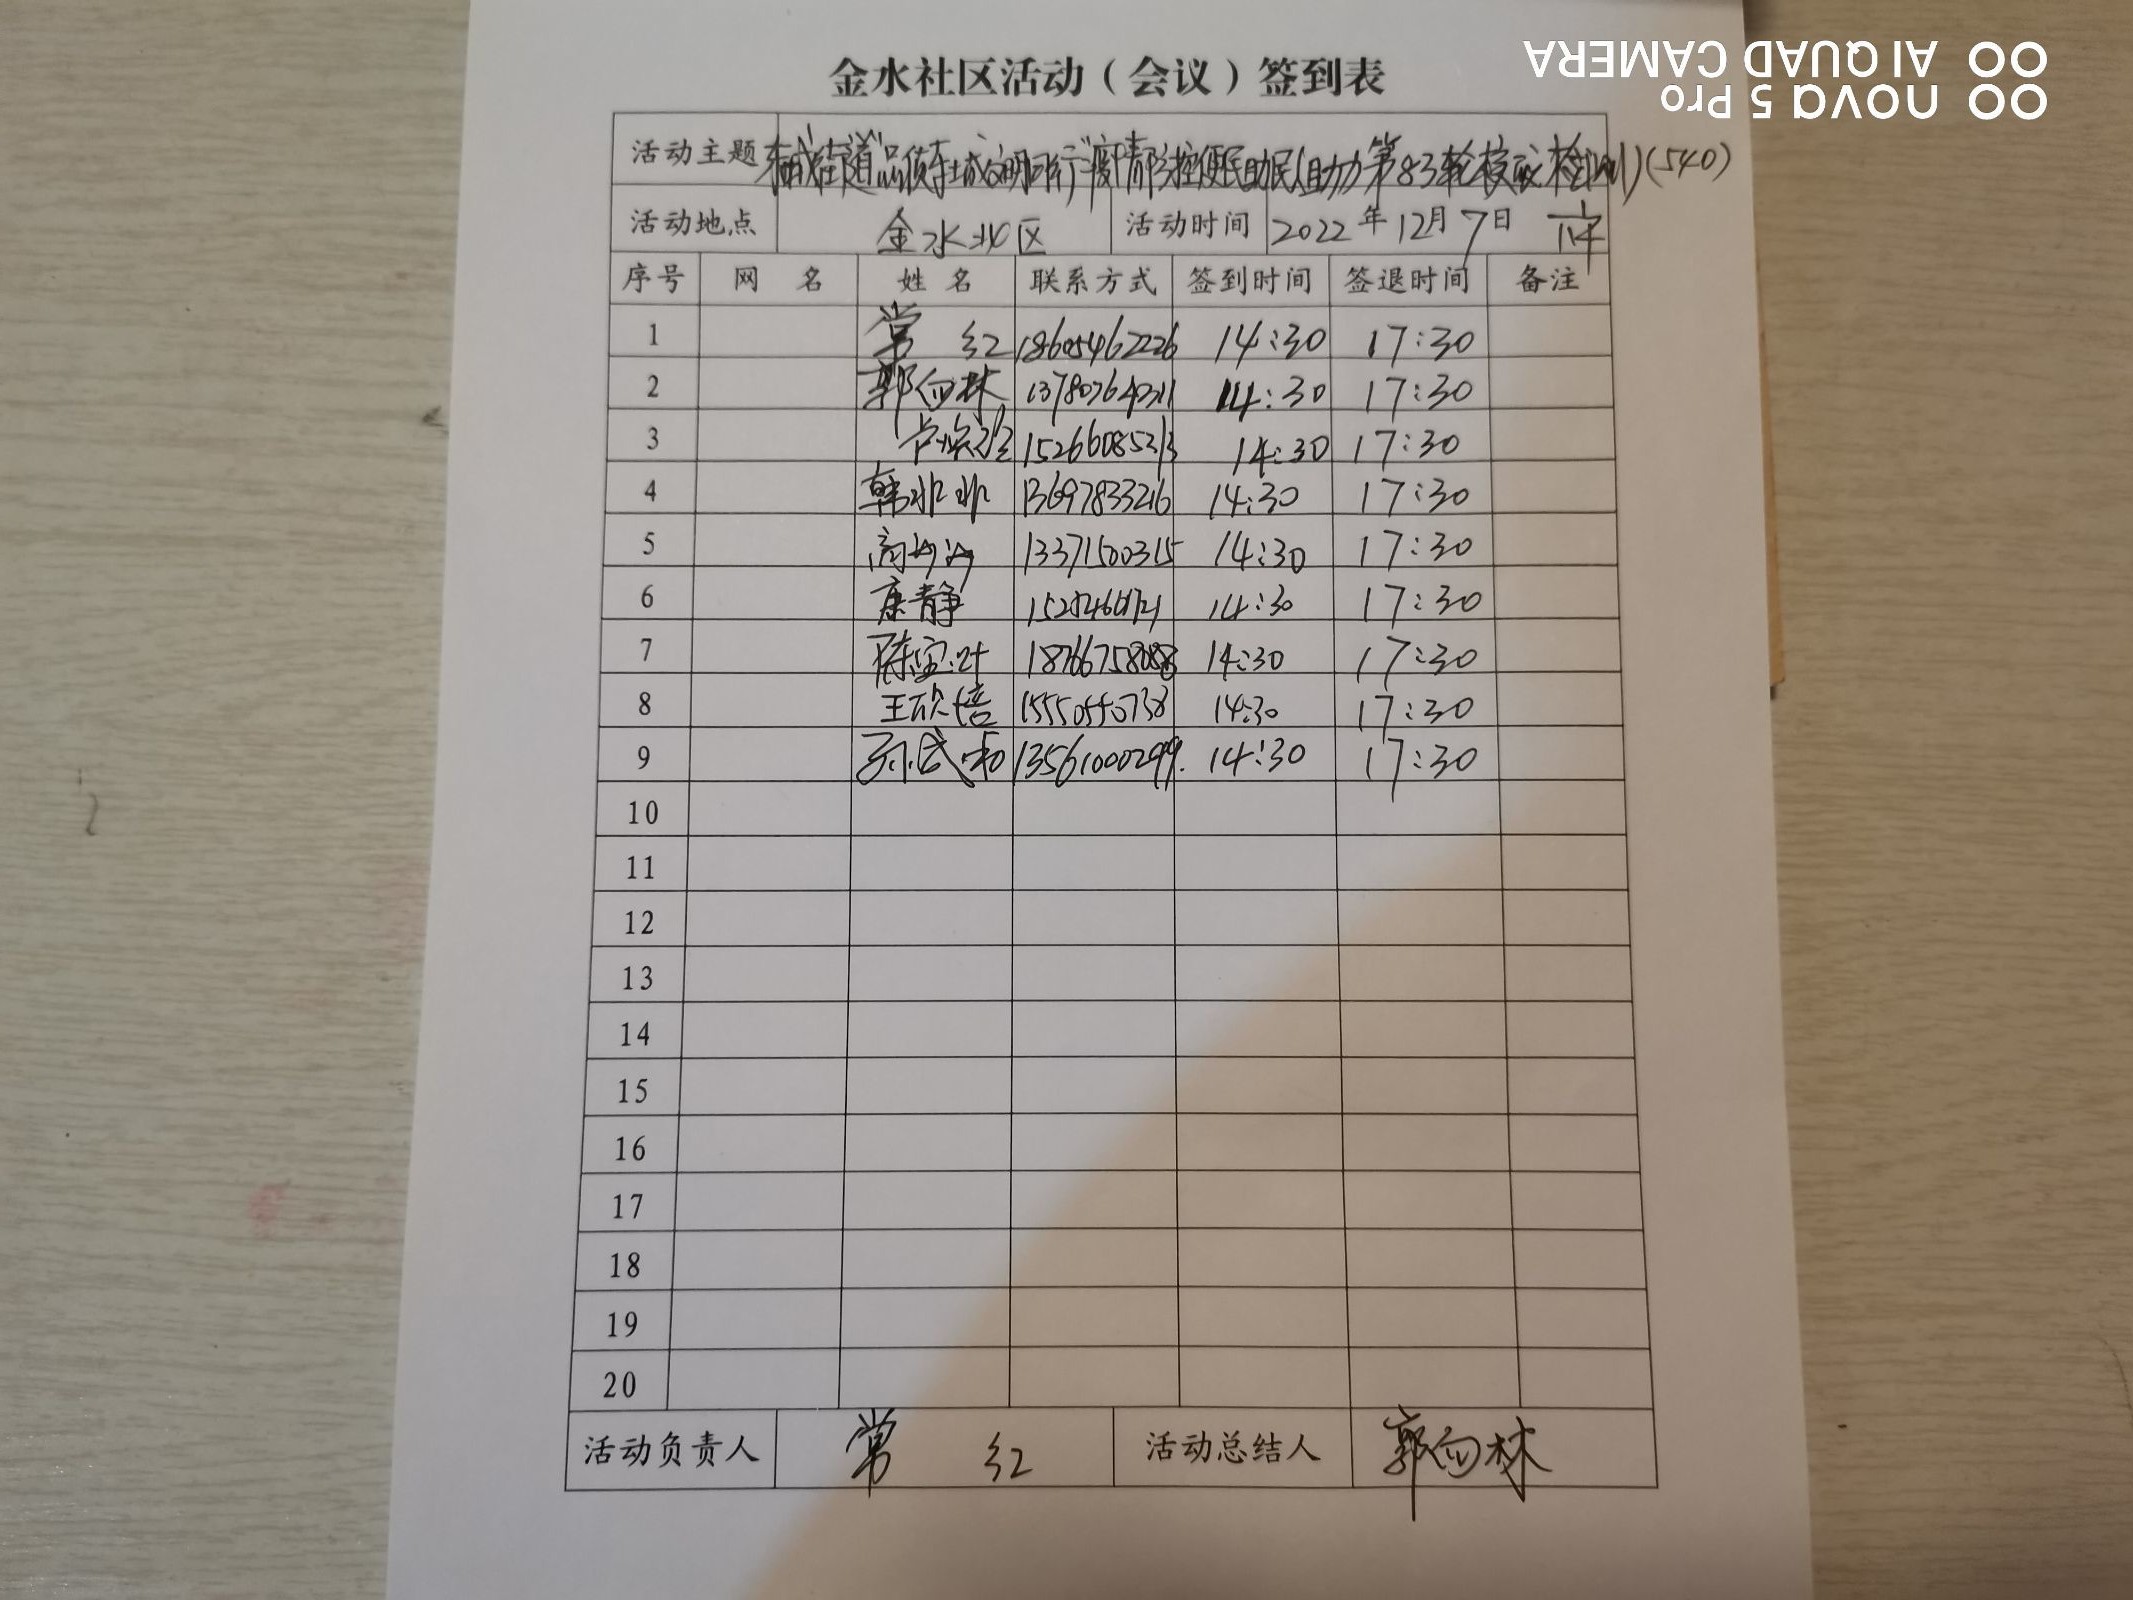 金水社区活动（会议）签到表
活动主题 东城街道"品质东城文明同行"疫情防控便民助民(助力第83轮核酸检测)(540)
活动地点 金水北区 活动时间 2022年12月7日 下午
序号 网 名 姓 名 联系方式 签到时间 签退时间 备注
1 常 红 18605462226 14:30 17:30
2 郭向林 14:30 17:30
3 15266085313 14:30 17:30
4 韩非非 13697833216 14:30 17:30
5 13371500315 14:30 17:30
6 康静 14:30 17:30
7 陈宝叶 18766758088 14:30 17:30
8 王欣倍 15550540738 14:30 17:30
9 孙武和 13561000299. 14:30 17:30
10
11
12
13
14
15
16
17
18
19
20
活动负责人 常 红 活动总结人 郭向林
nova 5 Pro
AI QUAD CAMERA